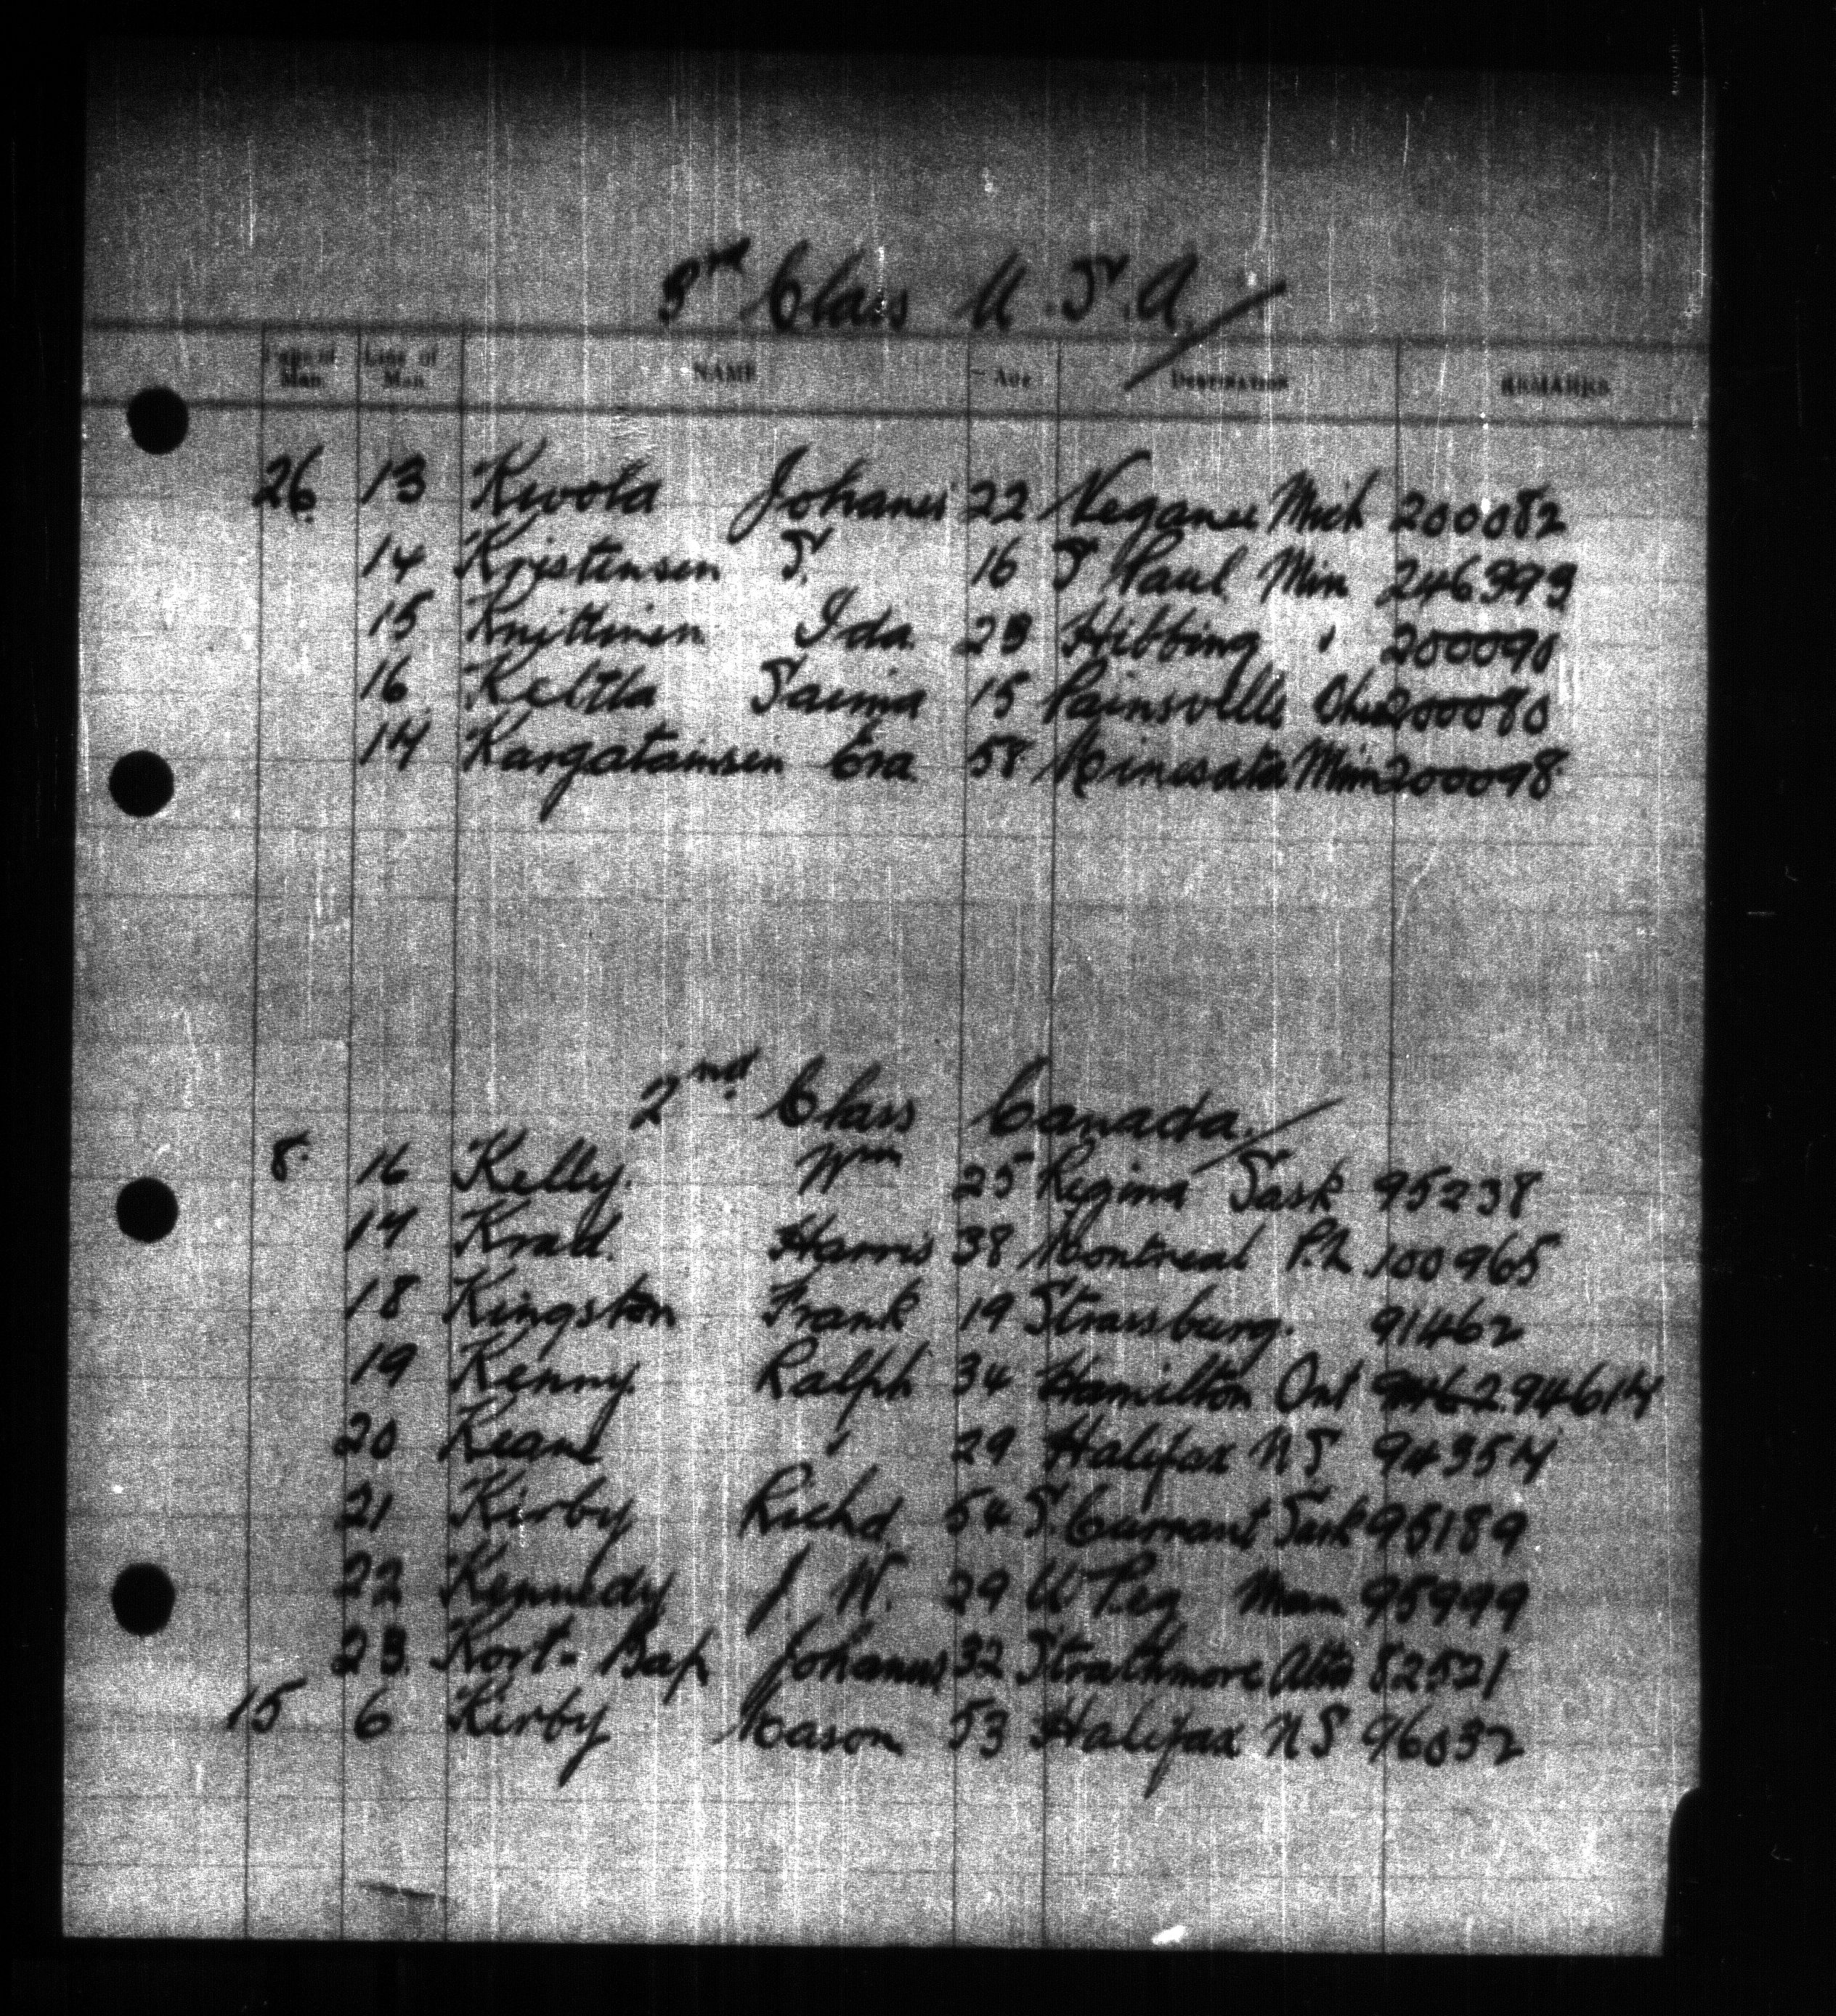 3rd Class U.S.A.
Page of Man. Line of Man. NAME AGE DESTINATION REMARKS
26 13 Kivola Johanes 22 Neganee Mich 200082
14 Kristensen S. 16 S Paul Min 246399
15 Knittinen Ida 23 Hibbing " 200090
16 Keltla Saima 15 Painsville Ohio 200080
17 Kargatainsen Eva 58 Minesota Minn 200098
2nd Class Canada.
8. 16 Kelly. Wm 25 Regina Sask 95238
17 Krad. Harris 38 Montreal P.Q. 100965
18 Kingston Frank 19 Strassburg. 91462
19 Kenny. Ralph 34 Hamilton Ont 91462 94617
20 Keane " 29 Halifax N S 94357
21 Kirby Richd 54 S. Currant Sask 95189
22 Kennedy J. W. 29 W Peg Man 95999
23. Kort-Bap Johanus 32 Strathmore Alta 82521
15 6 Kirby Mason 53 Halifax N S 96032